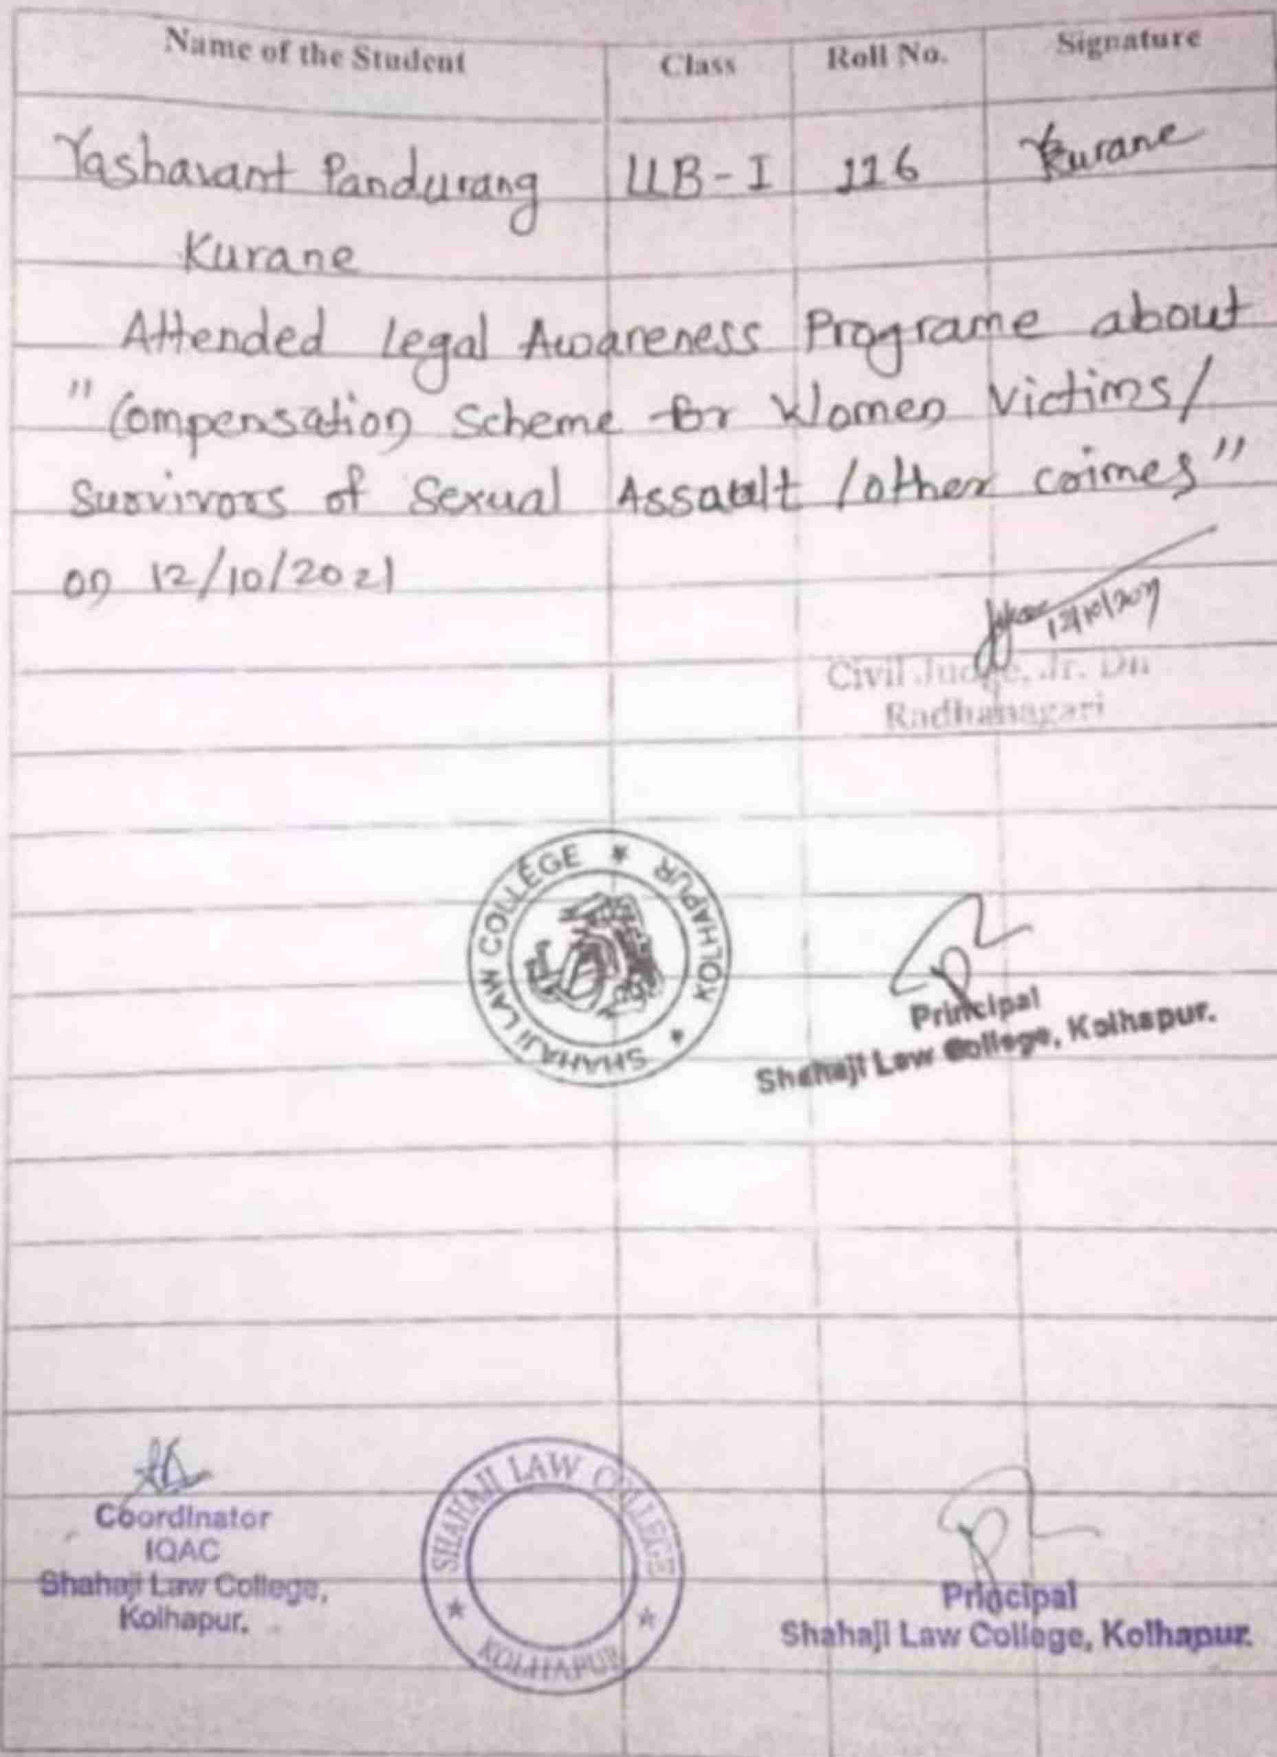 Name of the Student Class Roll No. Signature
Yashavant Pandurang LLB-I 116 Kurane
Kurane
Attended Legal Awareness Programe about
"Compensation Scheme for Women Victims/
Survivors of Sexual Assault /other crimes"
on 12/10/2021
12/10/2021
Civil Judge, Jr. Dn
Radhanagari
SHAHAJI LAW COLLEGE ★ KOLHAPUR ★
Principal
Shahaji Law College, Kolhapur.
Coordinator
IQAC
Shahaji Law College,
Kolhapur.
SHAHAJI LAW COLLEGE
★ KOLHAPUR ★
Principal
Shahaji Law College, Kolhapur.